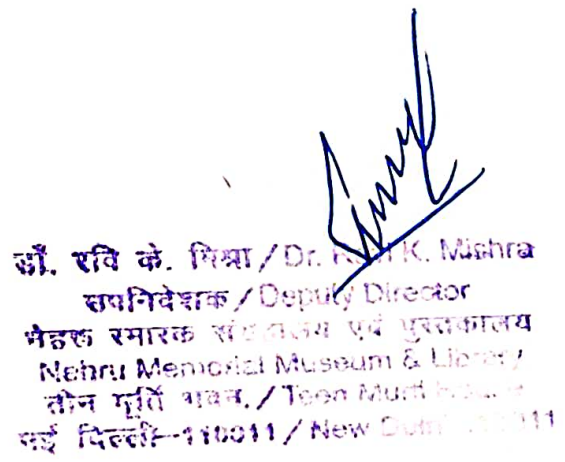 डॉ. रवि के. मिश्रा / Dr. K. Mishra
उपनिदेशक / Deputy Director
नेहरू स्मारक संग्रहालय एवं पुस्तकालय
Nehru Memorial Museum & Library
तीन मूर्ति भवन, / Teen Murti
नई दिल्ली-110011 / New Delhi 110011